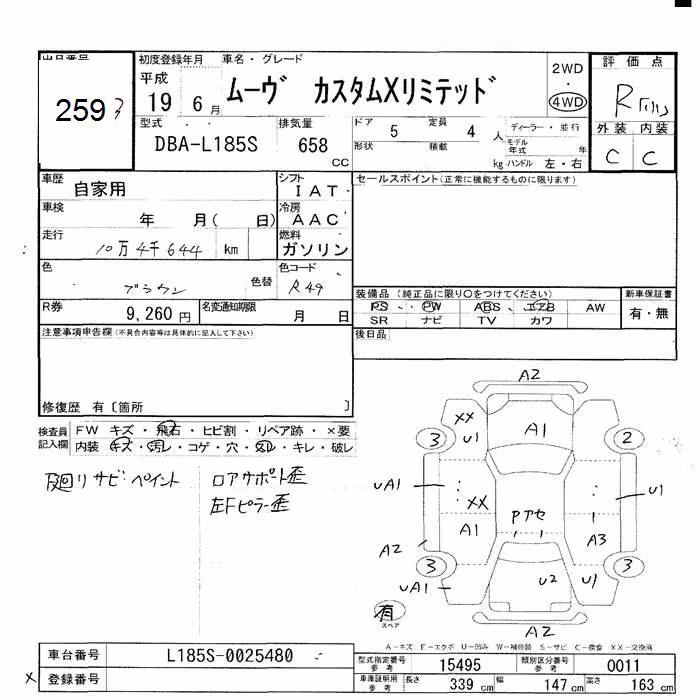 出品番号
259
初度登録年月
平成
19 6月
車名・グレード
ムーヴ カスタムXリミテッド
2WD
・
4WD
評価点
R
外装 内装
C C
型式
DBA-L185S
排気量
658
CC
ドア
5
定員
4
人
形状
積載
kg
ディーラー・並行
モデル
年式
年
ハンドル 左・右
車歴
自家用
シフト
I A T
車検
年 月( 日)
冷房
A A C
走行
10万4千644 km
燃料
ガソリン
色
ブラウン
色替
色コード
R49
R券
9,260 円
名変通知期限
月 日
セールスポイント(正常に機能するものに限ります)
装備品 (純正品に限り○をつけてください)
PS ・ PW ABS ・ エアB AW
SR ナビ TV カワ
新車保証書
有・無
後日品
注意事項申告欄(不具合内容等は具体的に記入して下さい)
修復歴 有〔箇所 〕
検査員
記入欄
FW キズ・飛石・ヒビ割・リペア跡・×要
内装 キズ・汚レ・コゲ・穴・スレ・キレ・破レ
下廻りサビペイント
ロアサポート歪
左Fピラー歪
A2
XX
U1
A1
3
2
UA1
XX
U1
A1
Pアセ
A3
A2
3
3
UA1
U2
U1
有
スペア
A2
A-キズ E-エクボ U-凹み W-補修跡 S-サビ C-腐食 XX-交換済
車台番号
L185S-0025480
登録番号
型式指定番号
参考
15495
類別区分番号
参考
0011
車庫証明用
参考
長さ
339 cm
幅
147 cm
高さ
163 cm